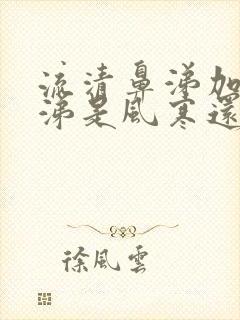 流清鼻涕加
涕是風寒還
徐風雲